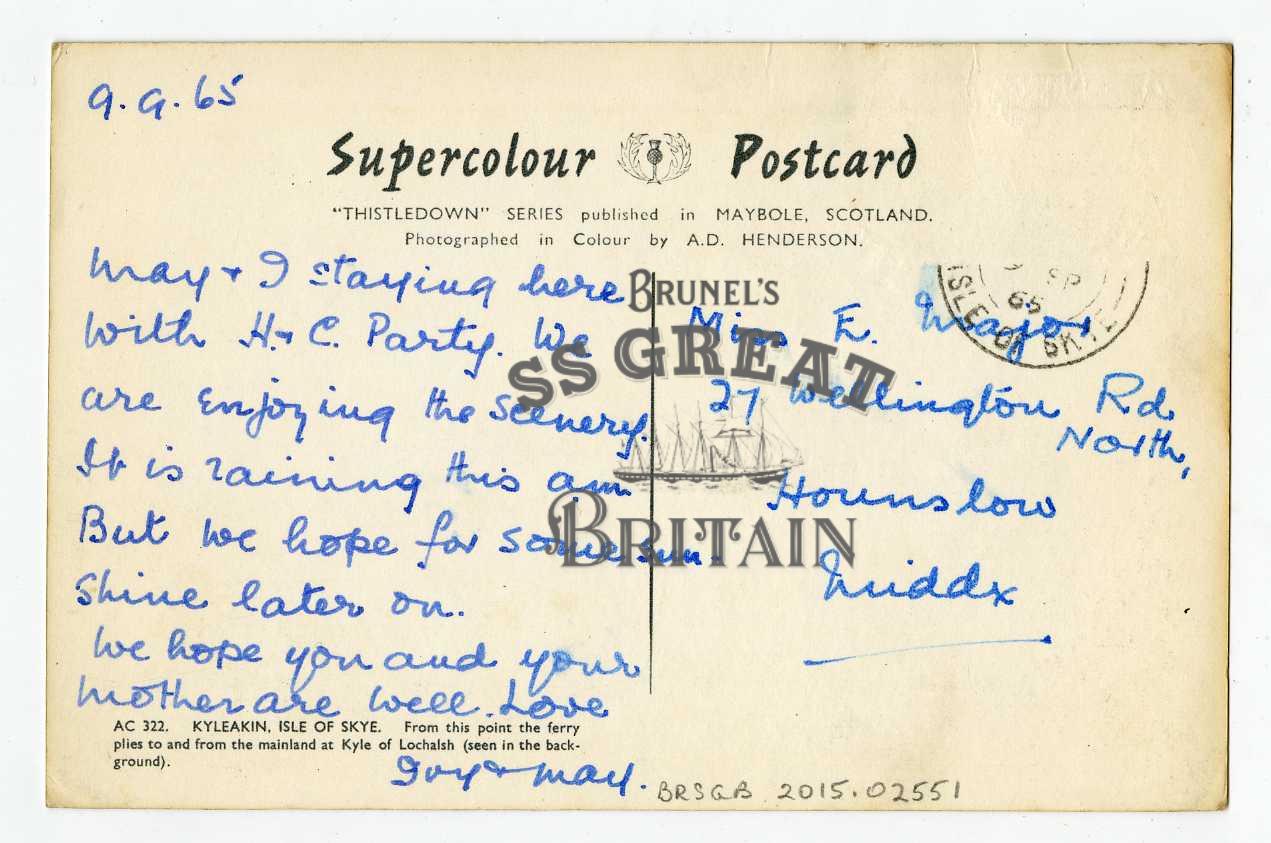 9.9.65
Supercolour Postcard
"THISTLEDOWN" SERIES published in MAYBOLE, SCOTLAND.
Photographed in Colour by A.D. HENDERSON.
May + I staying here
with H.+C. Party. We
are enjoying the scenery.
It is raining this am
But we hope for some sun-
shine later on.
We hope you and your
mother are well. Love
Ivy + May.
AC 322. KYLEAKIN, ISLE OF SKYE. From this point the ferry
plies to and from the mainland at Kyle of Lochalsh (seen in the back-
ground).
SP
65
ISLE OF SKYE
Miss E. Major
27 Wellington Rd
North,
Hounslow
Middx
BRUNEL'S
SS GREAT
BRITAIN
BRSGB 2015.02551